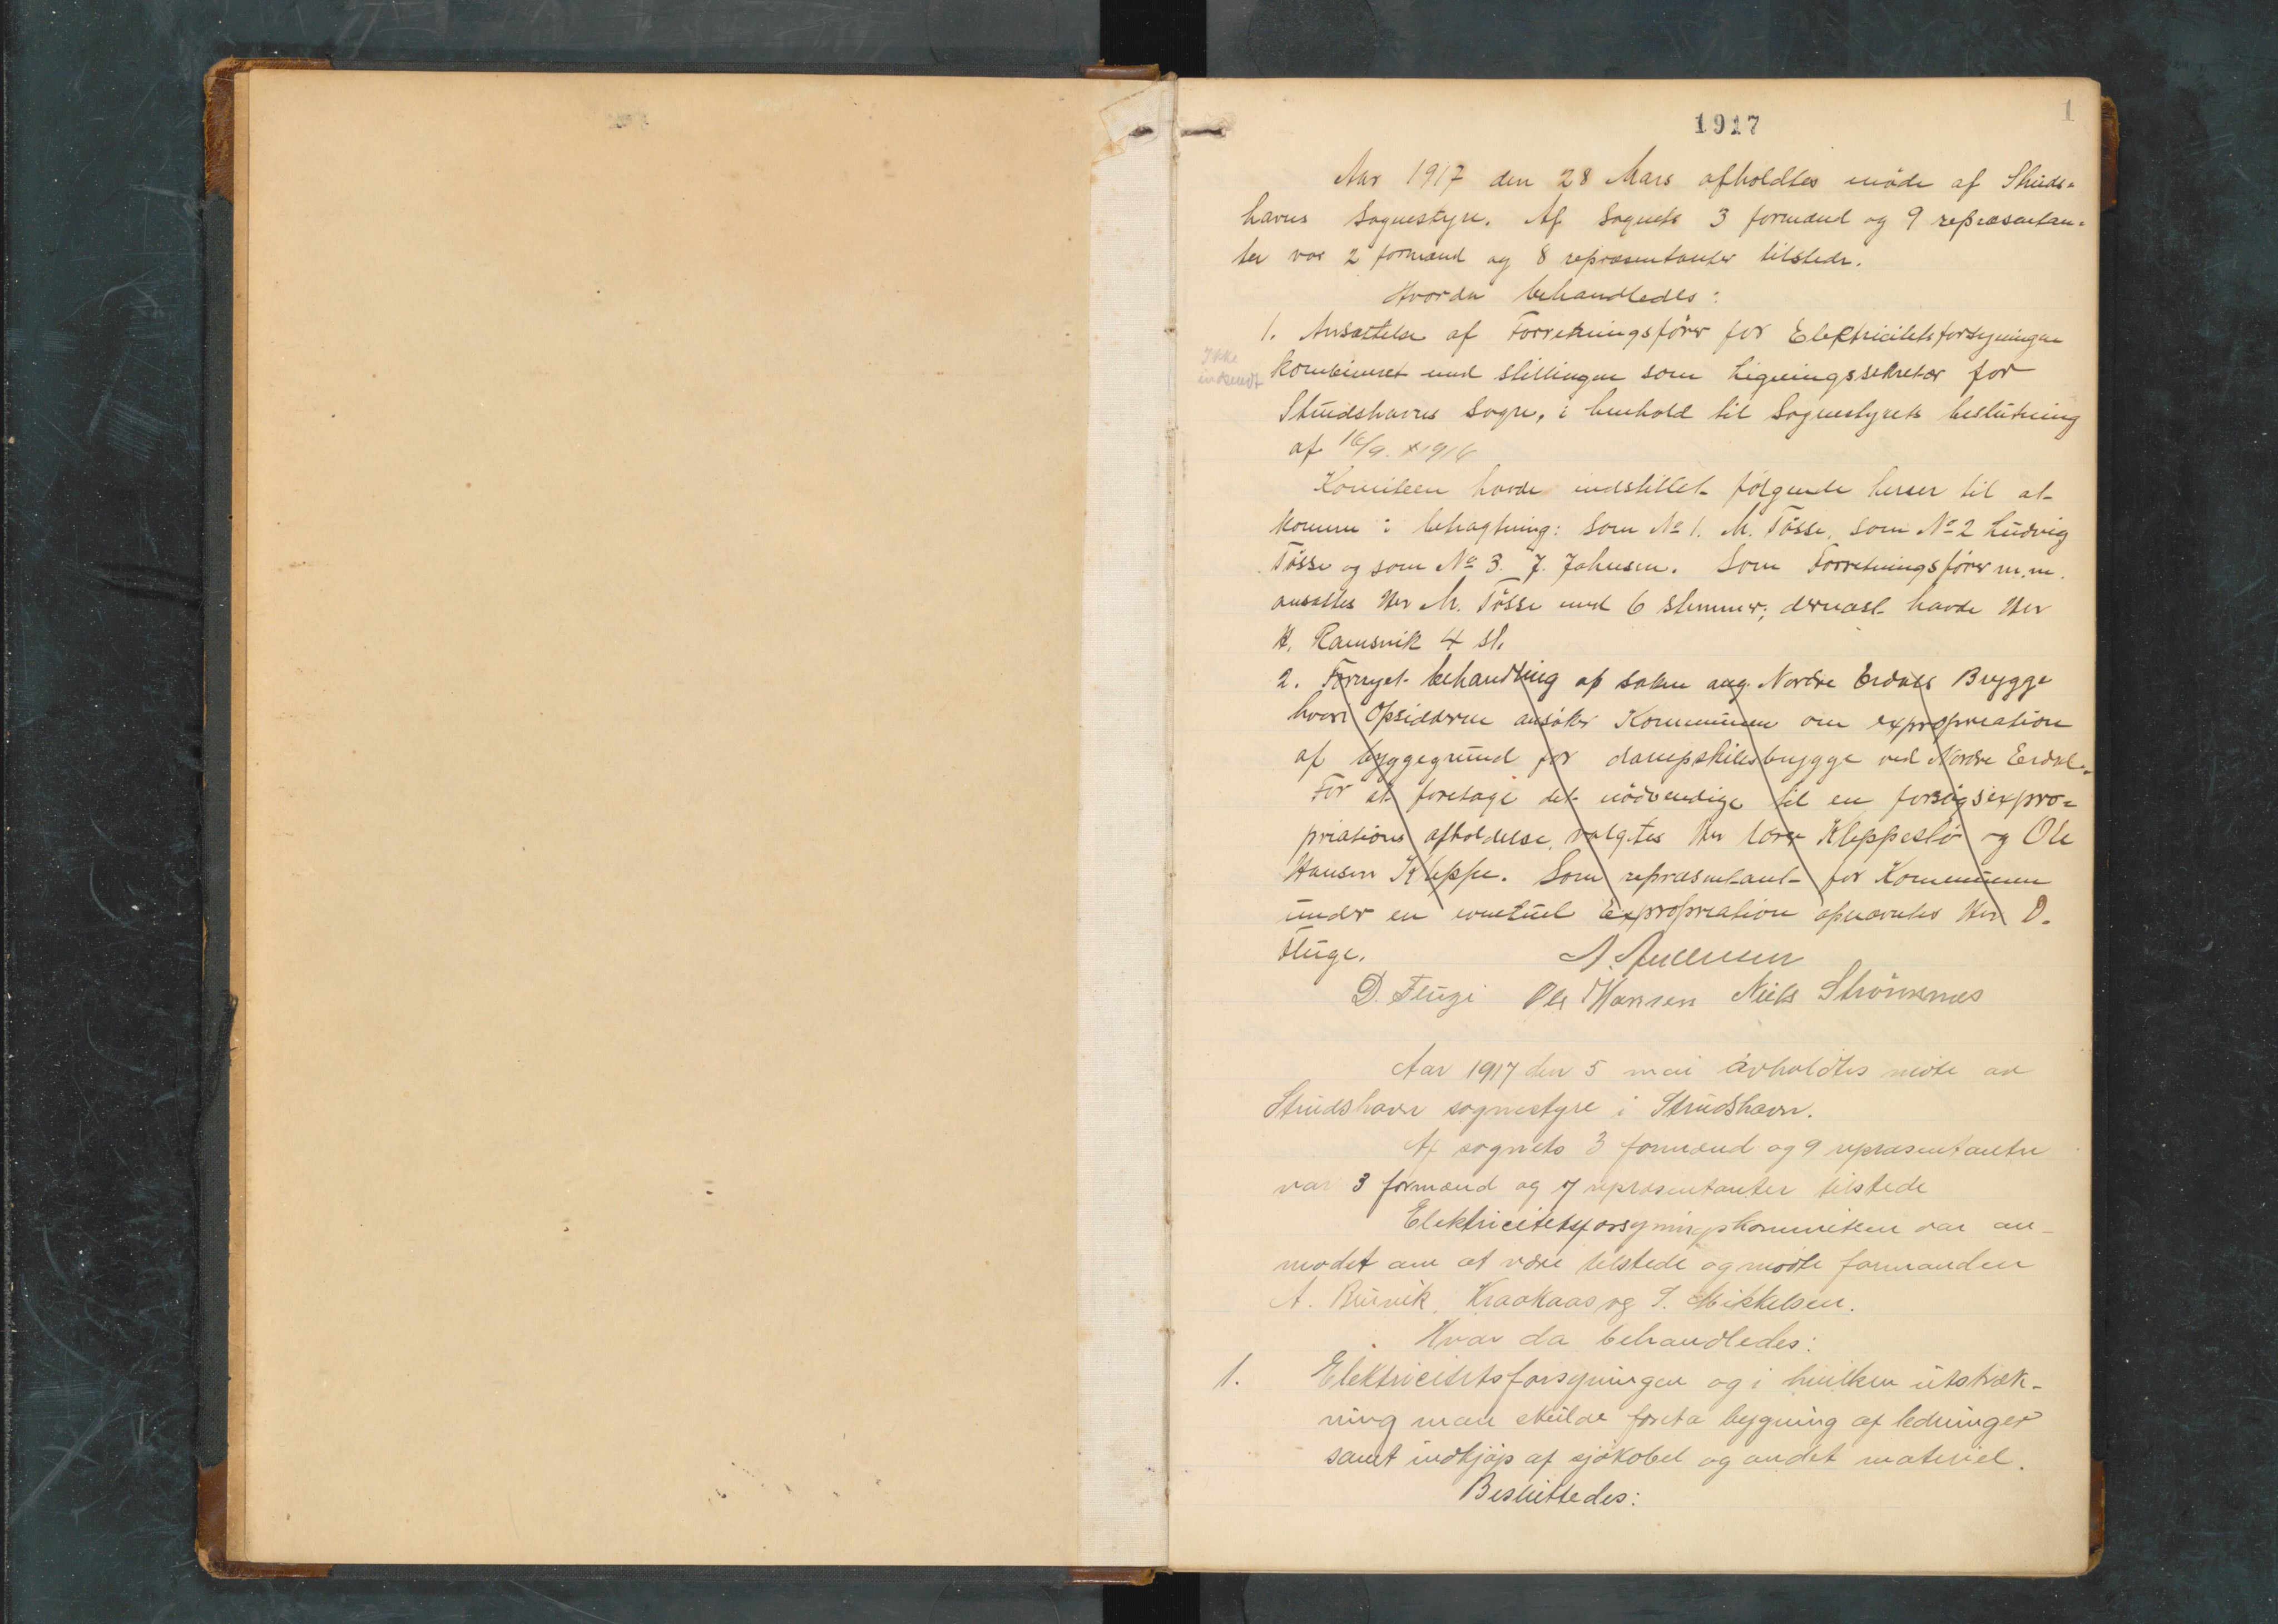 1
1917
Aar 1917 den 28 Mars afholdtes møde af Struds-
havns Sognestyre. Af Sognets 3 formænd og 9 repræsentan-
ter var 2 formænd og 8 repræsentanter tilstede.
Hvorda behandledes:
1. Ansættelse af Forretningsfører for Elektricitetsforsyningen
Ikke
kombineret med stillingen som Ligningssekretær for
Strudshavns Sogn, i henhold til Sognestyrets beslutning
af 16/9. 1916
Komiteen havde indstillet følgende herrer til at
komme i betragtning: Som No 1. M. Tøsse, som No 2 Ludvig
Tøsse og som No 3. J. Johnsen. Som Forretningsfører m.m.
ansattes Her M. Tøsse med 6 stemmer; dernæst havde Her
H. Ramsvik 4 st.
2. Fornyet behandling af saken ang. Nordre Erdals Brygge
hvori Opsidderne ansøker Kommunen om expropriation
af byggegrund for dampskibsbrygge ved Nordre Erdal.
For at foretage det nødvendige til en forsøgsexpro-
priations afholdelse, valgtes Her lærer Kleppestø og Ole
Hansen Kleppe. Som repræsentant for Kommunen
under en eventuel Expropriation opnævntes Her D.
Fluge.
D. Fluge Ole Hansen Niels Strømsnes
Aar 1917 den 5 mai avholdtes møte av
Strudshavn sognestyre i Strudshavn.
Af sognets 3 formænd og 9 repræsentanter
var 3 formænd og 7 repræsentanter tilstede
Elektricitetsforsyningskommiteen var an-
modet om at være tilstede og møtte formanden
A. Bruvik, Kraakaas og S. Mikkelsen.
Hvor da behandledes:
1. Elektricitetsforsyningen og i hvilken utstræk-
ning man skulde foreta bygning af ledninger
samt indkjøp af sjøkabel og andet materiel.
Besluttedes: